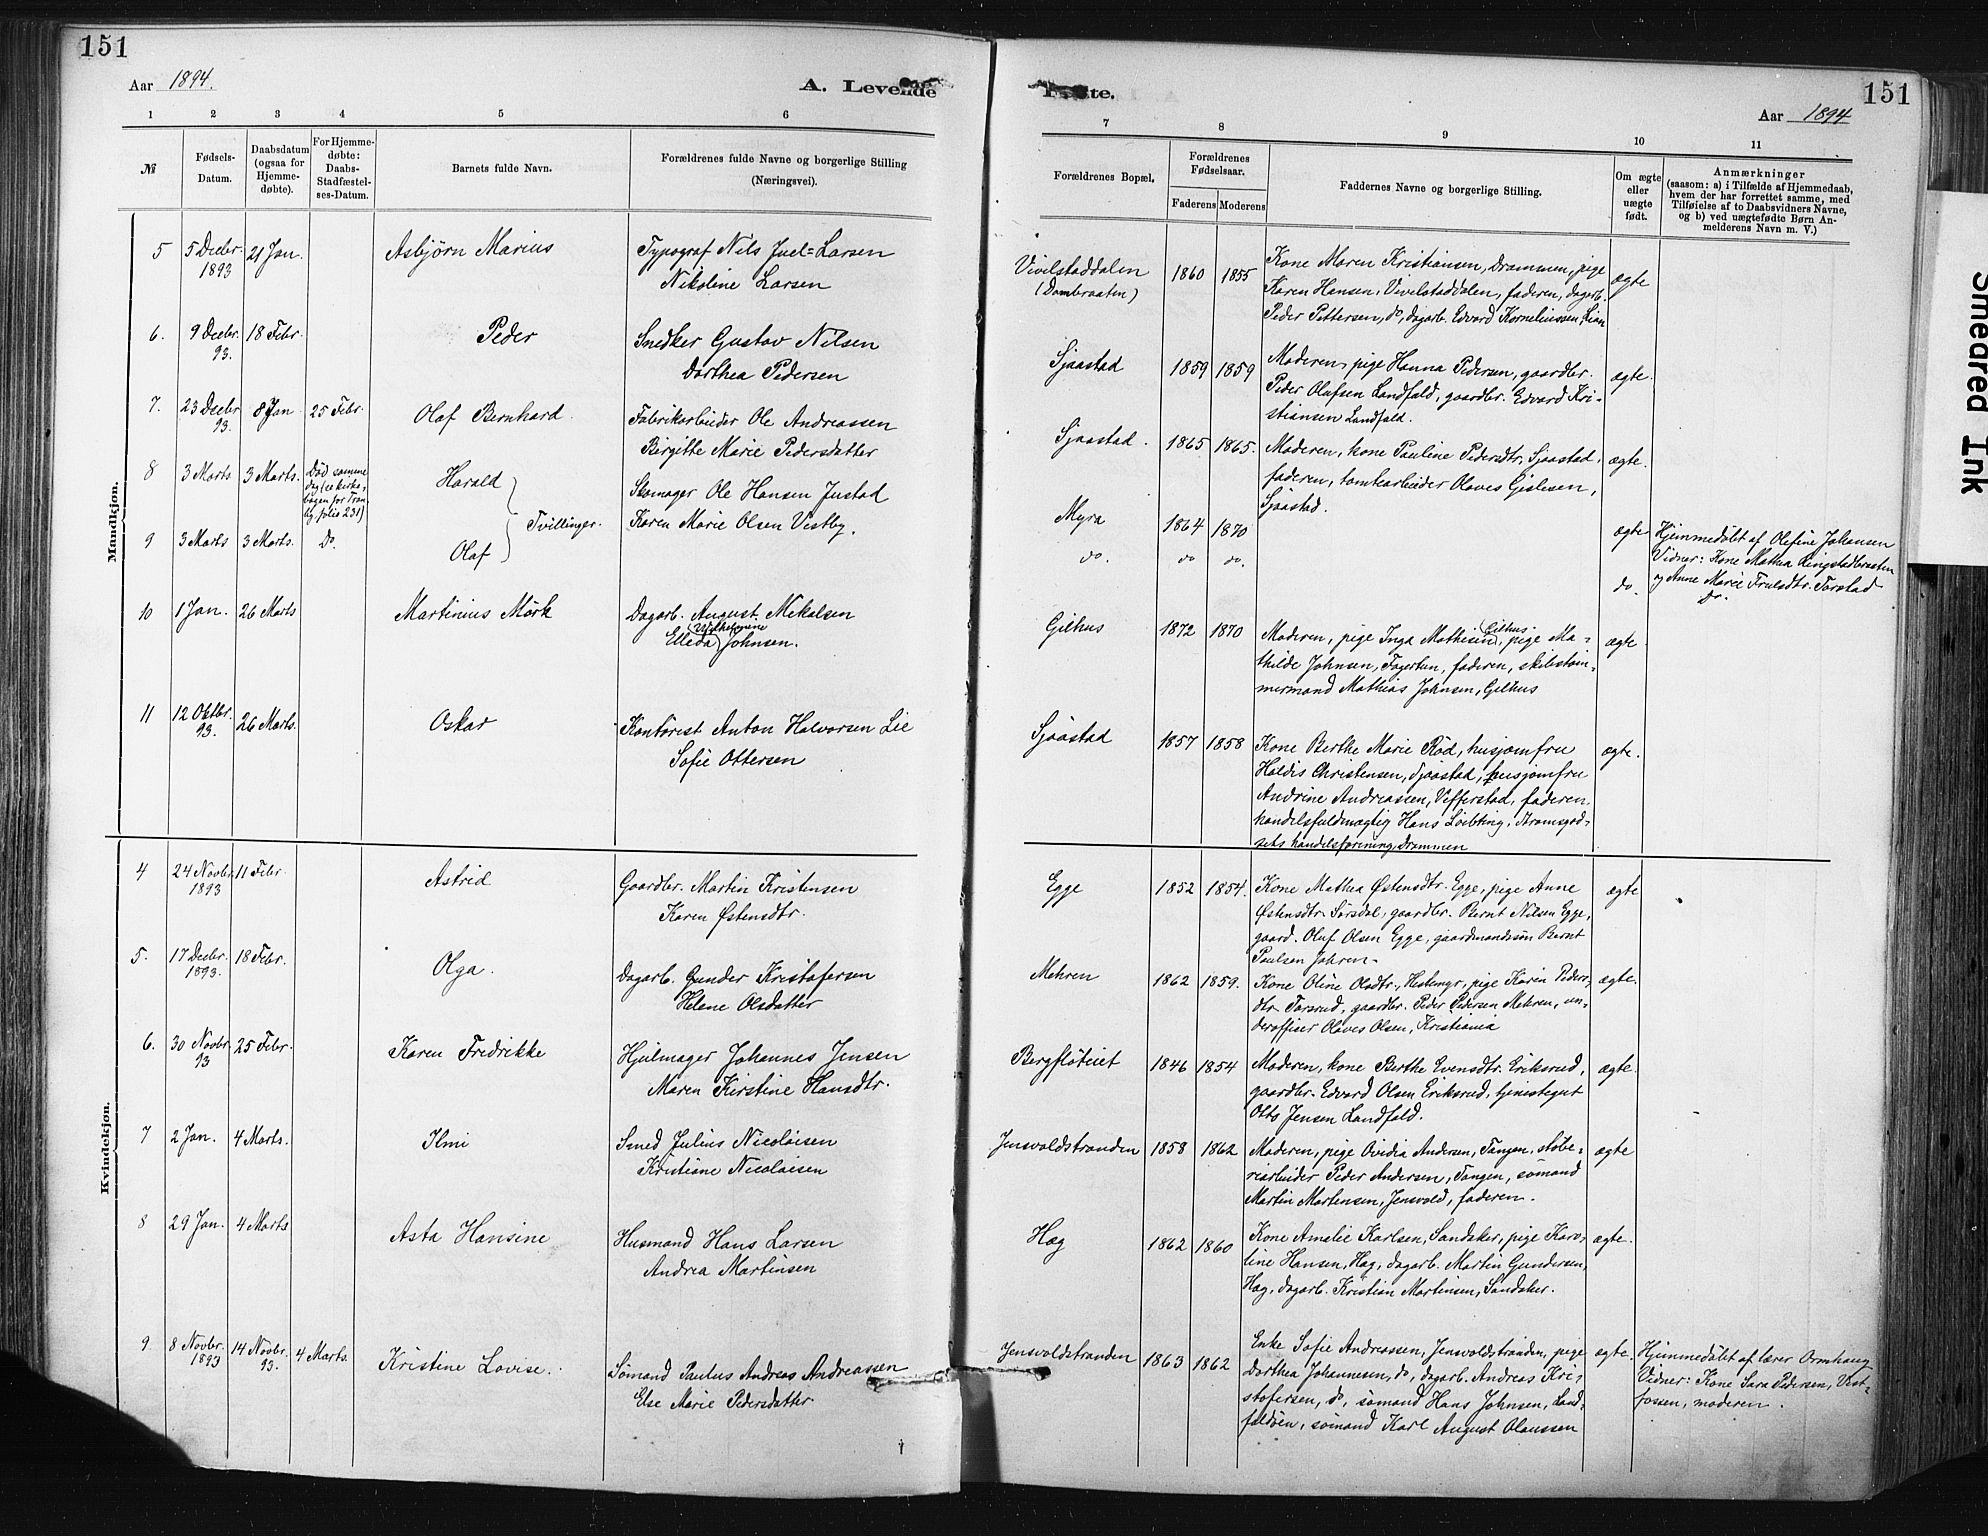 151
Aar 1894.
A. Levende
1 2 3 4 5 6
№
Fødsels-
Datum.
Daabsdatum
(ogsaa for
Hjemme-
døbte).
For Hjemme-
døbte:
Daabs-
Stadfæstel-
ses-Datum.
Barnets fulde Navn.
Forældrenes fulde Navne og borgerlige Stilling
(Næringsvei).
Mandkjøn.
5 5 Decbr. 21 Jan. Asbjørn Marius Typograf Nils Juel-Larsen
1893 Nikoline Larsen
6. 9 Decbr. 18 Febr. Peder Snedker Gustav Nilsen
93. Dorthea Pedersen
7. 23 Decbr. 8 Jan 25 Febr. Olaf Bernhard. Fabrikarbeider Ole Andreassen
93. Birgitte Marie Pedersdatter
8 3 Marts 3 Marts. Død samme Harald Skomager Ole Hansen Justad
dag (se kirke-
bogen for Tran-
by folio 231)
Tvillinger. Karen Marie Olsen Vestby.
9 3 Marts 3 Marts. Do. Olaf
10 1 Jan. 26 Marts Martinius Mørk Dagarb. August Mikalsen
Vilhelmine
Elleda Johnsen.
11 12 Oktbr. 26 Marts. Oskar Kontorist Anton Halvorsen Lie
93. Sofie Ottersen
Kvindekjøn.
4 24 Novbr. 11 Febr. Astrid Gaardbr. Martin Kristensen
1893 Karen Østensdtr.
5. 17 Decbr. 18 Febr. Olga. Dagarb. Gunder Kristofersen
1893. Helene Olsdatter
6. 30 Novbr. 25 Febr. Karen Fredrikke Hjulmager Johannes Jensen
93 Maren Kirstine Hansdtr.
7 2 Jan. 4 Marts. Ilmi Smed Julius Nicolaisen
Kristiane Nicolaisen
8 29 Jan. 4 Marts Asta Hansine Husmand Hans Larsen
Andrea Martinsen
9 8 Novbr. 14 Novbr. 4 Marts. Kristine Lovise. Sømand Paulus Andreas Andreassen
1893 93. Else Marie Pedersdatter
151
Aar 1894
7 8 9 10 11
Forældrenes Bopæl.
Forældrenes
Fødselsaar.
Faderens Moderens
Faddernes Navne og borgerlige Stilling.
Om ægte
eller
uægte
født.
Anmærkninger
(saasom: a) i Tilfælde af Hjemmedaab,
hvem der har forrettet samme, med
Tilføielse af to Daabsvidners Navne,
og b) ved uægtefødte Børn An-
melderens Navn m. V.)
Vivelstaddalen 1860 1855 Kone Maren Kristiansen, Drammen, pige ægte
(Dambraaten) Karen Hansen, Vivelstaddalen, faderen, dagarb.
Peder Pettersen, do, dagarb. Edvard Korneliussen, Lian
Sjaastad 1859 1859 Moderen, pige Hanna Pedersen, gaardbr. ægte.
Peder Olufsen Landfald, gaardbr. Edvard Kri-
stiansen Landfald.
Sjaastad. 1865 1865. Moderen, kone Pauline Pedersdtr. Sjaastad, ægte.
faderen, tomtearbeider Olaves Gislesen,
Sjaastad.
Myra 1864 1870 ægte Hjemmedøbt af Olefine Johansen
do. do do. do. Vidner: Kone Mathea Lingstadbraaten
og Anne Marie Trulsdtr. Torstad
Do.
Gilhus 1872 1870 Moderen, pige Inga Mathisen Gilhus, pige Ma- ægte
thilde Johnsen, Fagertun, faderen, skibstøm-
mermand Mathias Johnsen, Gilhus
Sjaastad 1857 1858 Kone Berthe Marie Rød, husjomfru ægte.
Haldis Christensen, Sjaastad, husjomfru
Andrine Andreassen, Vefferstad, faderen
handelsfuldmægtig Hans Løebting, Strømsgod-
sets handelsforening, Drammen
Egge 1852 1854. Kone Mathea Østensdtr. Egge, pige Anne ægte
Østensdtr. Sørsdal, gaardbr. Bernt Nilsen Egge,
gaard. Oluf Olsen Egge, gaardmandssøn Bernt
Paulsen Jahren.
Mehren 1862 1859. Kone Oline Olsdtr., Hestemyr, pige Karen Peders- ægte.
dtr. Torsrud, gaardbr. Peder Pedersen Mehren, un-
derofficer Olaves Olsen, Kristiania
Bergfløteiet 1846 1854 Moderen, kone Berthe Evensdtr. Eriksrud, ægte.
gaardbr. Edvard Olsen Eriksrud, tjenestegut
Olts Jensen Landfald.
Jensvoldstranden 1858 1862 Moderen, pige Ovidia Andersen, Tangen, støbe- ægte
riarbeider Peder Andersen, Tangen, sømand
Martin Mortensen, Jensvold, faderen.
Hag 1862 1860 Kone Amalie Karlsen, Sandaker, pige Karo- ægte.
line Hansen, Hag, dagarb. Martin Gundersen,
Hag, dagarb. Kristian Martinsen, Sandaker.
Jensvoldstranden 1863 1862 Enke Sofie Andreassen, Jensvoldstranden, pige ægte. Hjemmedøbt af lærer Ormhaug
Dorthea Johannesen, do, dagarb. Andreas Kri- Vidner: Kone Sara Pedersen, Vest-
stofersen, do, sømand Hans Johnsen, Land- fossen, moderen.
faldøen, sømand Karl August Olaussen
Smedred Ink